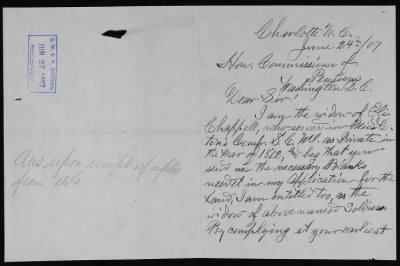 S. W. & N. DIVISION
JUN 27 1907
RECEIVED
Ans. upon receipt of
from
Charlotte N.C.
June 24th/07
Hon. Commissioner of
Pensions
Washington D.C.
Dear Sir:
I am the widow of Eli
Chappell, who served in
Comp. S.C. Ml. as Private in
the War of 1812, & beg that you
send me the necessary Blanks
needed in my Application for the
Land, I am entitled too, as the
widow of above named Soldier.
By complying at your earliest